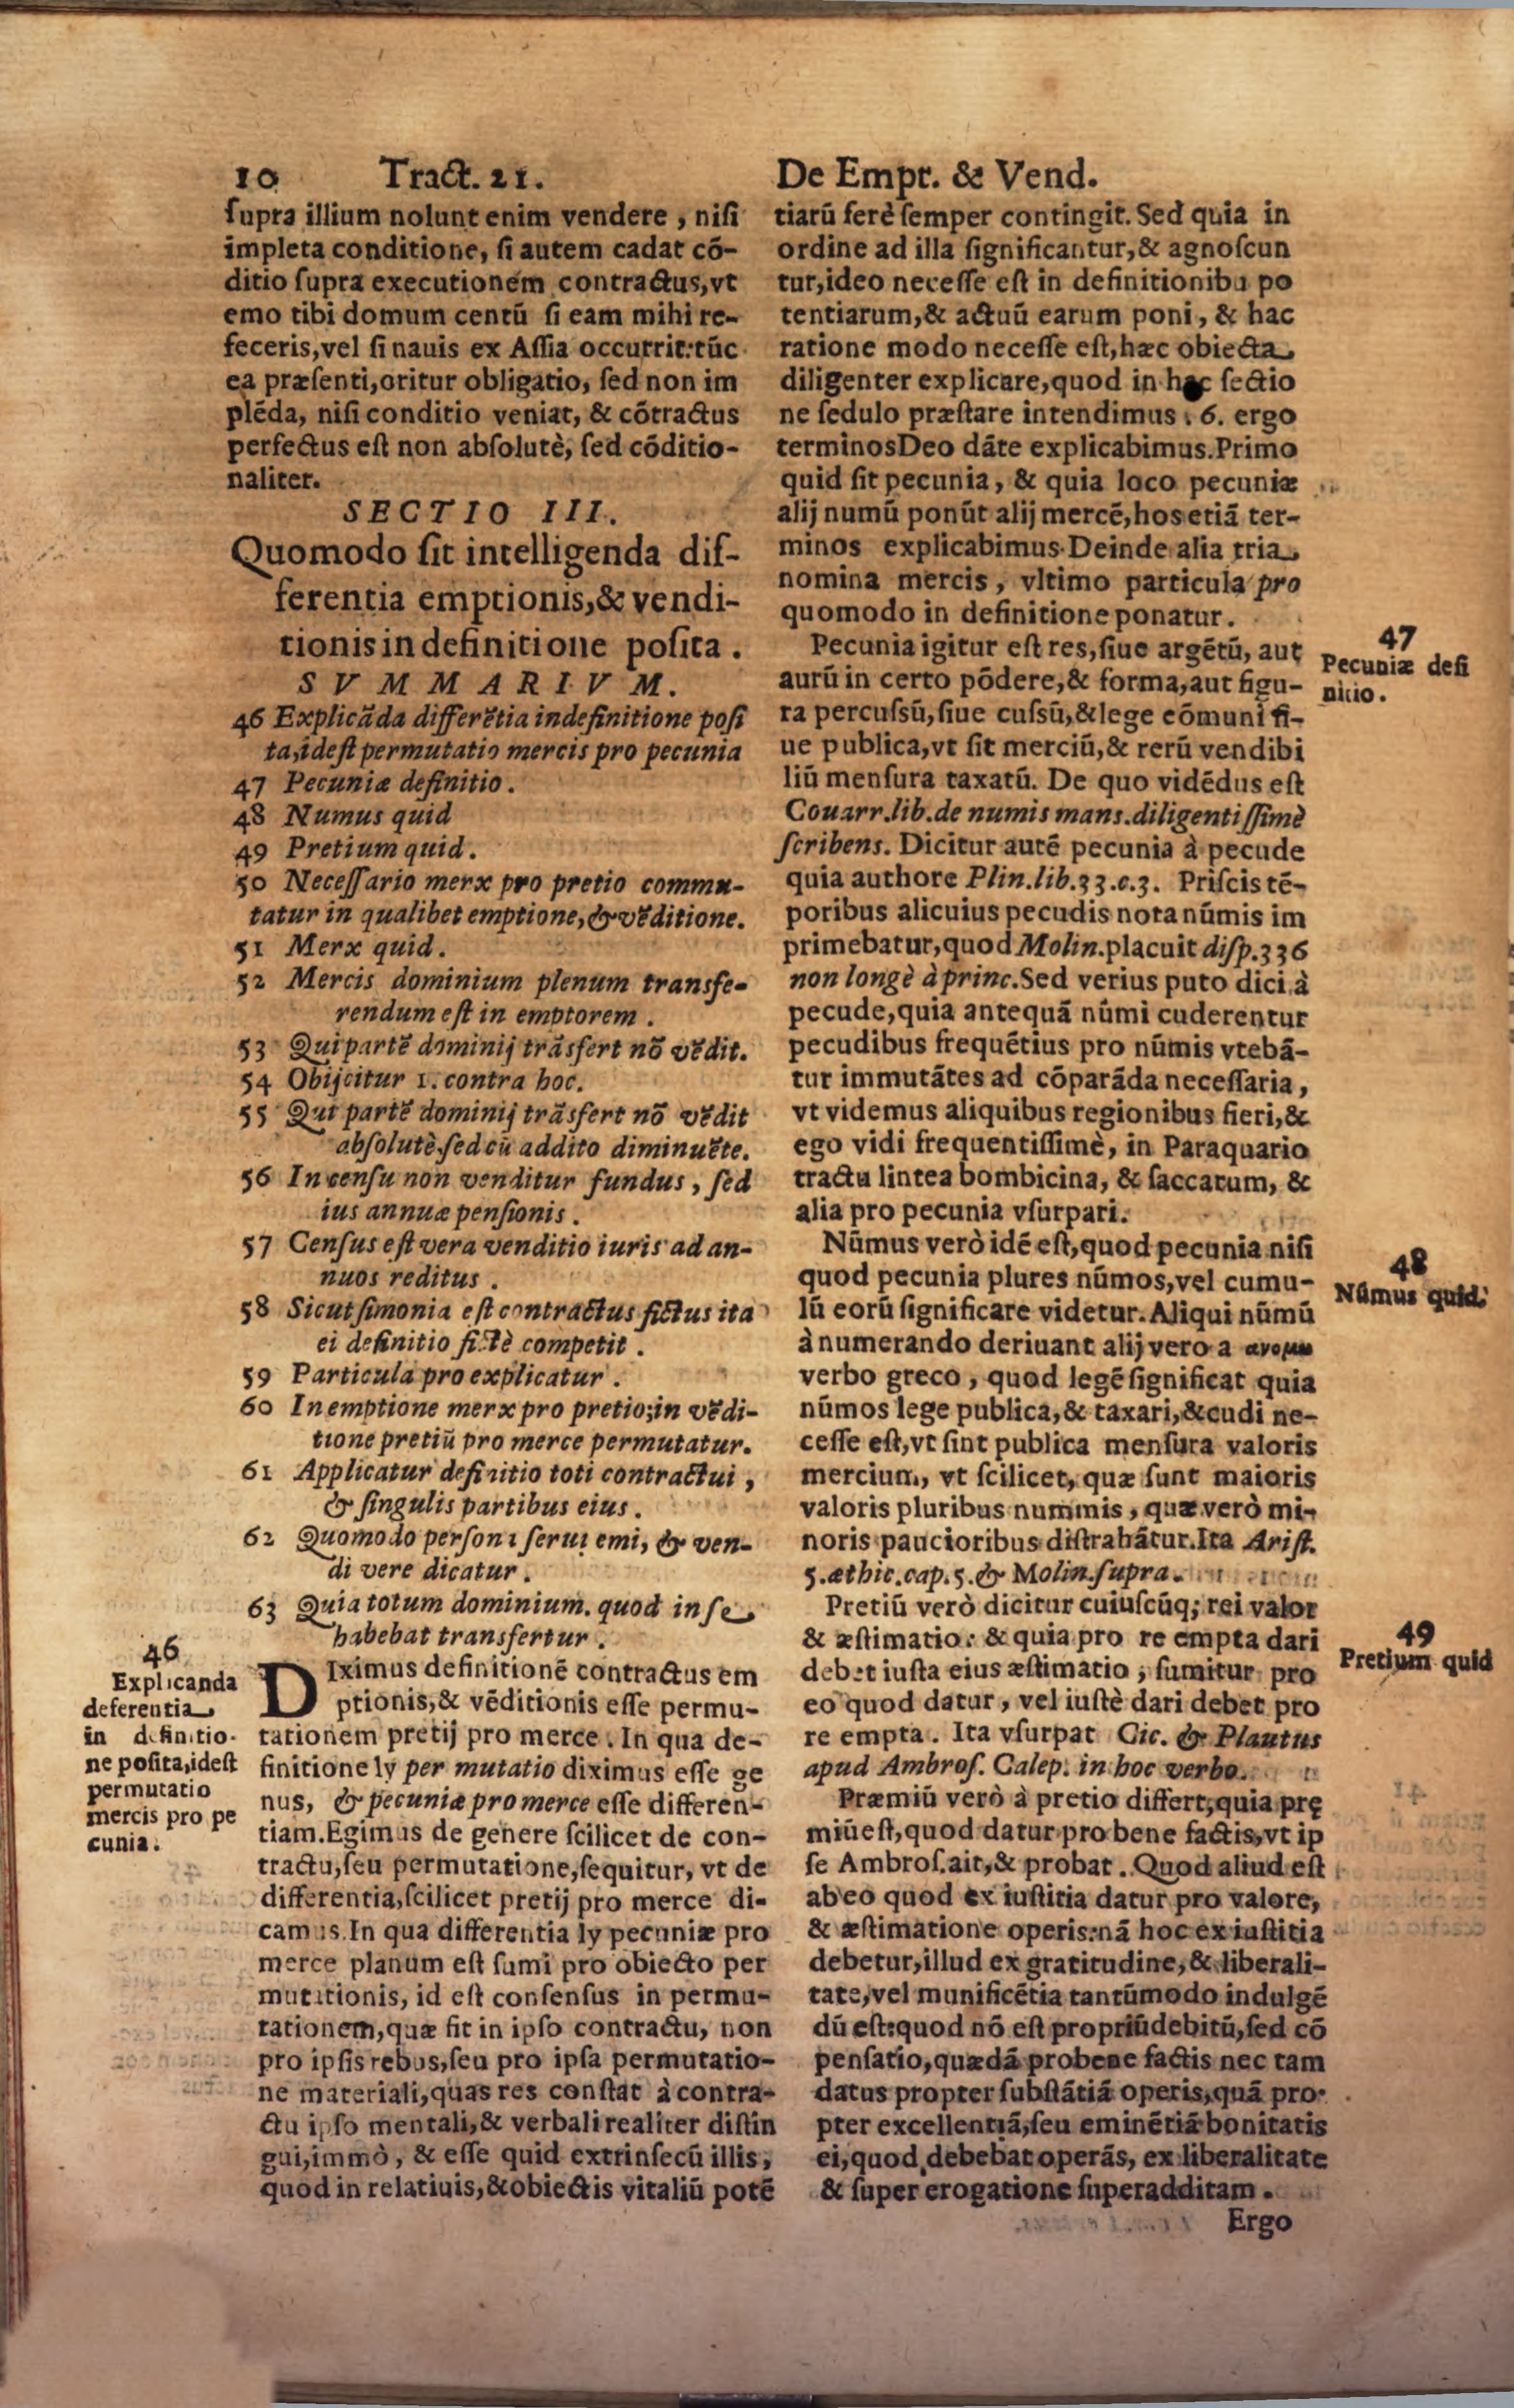 10 Tract. 21. De Empt. & Vend.
ſupra illium nolunt enim vendere, niſi
impleta conditione, ſi autem cadat cō-
ditio ſupra executionem contractus, vt
emo tibi domum centū ſi eam mihi re-
feceris, vel ſi nauis ex Aſſia occurrit: tūc
ea præſenti, oritur obligatio, ſed non im
plēda, niſi conditio veniat, & cōtractus
perfectus eſt non abſolutè, ſed cōditio-
naliter.
SECTIO III.
Quomodo ſit intelligenda dif-
ferentia emptionis, & vendi-
tionis in definitione poſita.
SVMMARIVM.
46 Explicāda differētia indefinitione poſi
ta, ideſt permutatio mercis pro pecunia
47 Pecuniæ definitio.
48 Numus quid
49 Pretium quid.
50 Neceſſario merx pro pretio commu-
tatur in qualibet emptione, & vēditione.
51 Merx quid.
52 Mercis dominium plenum transfe-
rendum eſt in emptorem.
53 Qui partē dominij trāsfert nō vēdit.
54 Obijcitur 1. contra hoc.
55 Qui partē dominij trāsfert nō vēdit
abſolutè, ſed cū addito diminuēte.
56 In cenſu non venditur fundus, ſed
ius annuæ penſionis.
57 Cenſus eſt vera venditio iuris ad an-
nuos reditus.
58 Sicut ſimonia eſt contractus fictus ita
ei definitio fictè competit.
59 Particula pro explicatur.
60 In emptione merx pro pretio; in vēdi-
tione pretiū pro merce permutatur.
61 Applicatur definitio toti contractui,
& ſingulis partibus eius.
62 Quomodo perſona ſerui emi, & ven-
di vere dicatur.
63 Quia totum dominium. quod in ſe
habebat transfertur.
46
Explicanda
deferentia
in definitio-
ne poſita, ideſt
permutatio
mercis pro pe
cunia.
DIximus definitionē contractus em
ptionis, & vēditionis eſſe permu-
tationem pretij pro merce. In qua de-
finitione ly per mutatio diximus eſſe ge
nus, & pecuniæ pro merce eſſe differen-
tiam. Egimus de genere ſcilicet de con-
tractu, ſeu permutatione, ſequitur, vt de
differentia, ſcilicet pretij pro merce di-
camus. In qua differentia ly pecuniæ pro
merce planum eſt ſumi pro obiecto per
mutationis, id eſt conſenſus in permu-
tationem, quæ fit in ipſo contractu, non
pro ipſis rebus, ſeu pro ipſa permutatio-
ne materiali, quas res conſtat à contra-
ctu ipſo mentali, & verbali realiter diſtin
gui, immò, & eſſe quid extrinſecū illis,
quod in relatiuis, & obiectis vitaliū potē
tiarū ferè ſemper contingit. Sed quia in
ordine ad illa ſignificantur, & agnoſcun
tur, ideo neceſſe eſt in definitionibu po
tentiarum, & actuū earum poni, & hac
ratione modo neceſſe eſt, hæc obiecta
diligenter explicare, quod in hac ſectio
ne ſedulo præſtare intendimus. 6. ergo
terminos Deo dāte explicabimus. Primo
quid ſit pecunia, & quia loco pecuniæ
alij numū ponūt alij mercē, hos etiā ter-
minos explicabimus. Deinde alia tria
nomina mercis, vltimo particula pro
quomodo in definitione ponatur.
Pecunia igitur eſt res, ſiue argētū, aut
aurū in certo pōdere, & forma, aut figu-
ra percuſsū, ſiue cuſsū, & lege cōmuni ſi-
ue publica, vt ſit merciū, & rerū vendibi
liū menſura taxatū. De quo vidēdus eſt
Couarr. lib. de numis mans. diligentiſſimè
ſcribens. Dicitur autē pecunia à pecude
quia authore Plin. lib. 33. c. 3. Priſcis tē-
poribus alicuius pecudis nota nūmis im
primebatur, quod Molin. placuit diſp. 336
non longè à princ. Sed verius puto dici à
pecude, quia antequā nūmi cuderentur
pecudibus frequētius pro nūmis vtebā-
tur immutātes ad cōparāda neceſſaria,
vt videmus aliquibus regionibus fieri, &
ego vidi frequentiſſimè, in Paraquario
tractu lintea bombicina, & ſaccatum, &
alia pro pecunia vſurpari.
Nūmus verò idē eſt, quod pecunia niſi
quod pecunia plures nūmos, vel cumu-
lū eorū ſignificare videtur. Aliqui nūmū
à numerando deriuant alij vero a
verbo greco, quod legē ſignificat quia
nūmos lege publica, & taxari, & cudi ne-
ceſſe eſt, vt ſint publica menſura valoris
mercium, vt ſcilicet, quæ ſunt maioris
valoris pluribus nummis, quæ verò mi-
noris paucioribus diſtrahātur. Ita Ariſt.
5. æthic. cap. 5. & Molin. ſupra.
Pretiū verò dicitur cuiuſcūq; rei valor
& æſtimatio: & quia pro re empta dari
debet iuſta eius æſtimatio, ſumitur pro
eo quod datur, vel iuſtè dari debet pro
re empta. Ita vſurpat Cic. & Plautus
apud Ambroſ. Calep. in hoc verbo.
Præmiū verò à pretio differt, quia prę
miū eſt, quod datur pro bene factis, vt ip
ſe Ambroſ. ait, & probat. Quod aliud eſt
ab eo quod ex iuſtitia datur pro valore,
& æſtimatione operis: nā hoc ex iuſtitia
debetur, illud ex gratitudine, & liberali-
tate, vel munificētia tantūmodo indulgē
dū eſt: quod nō eſt propriū debitū, ſed cō
penſatio, quædā pro bene factis nec tam
datus propter ſubſtātiā operis, quā pro-
pter excellentiā, ſeu eminētiā bonitatis
ei, quod debebat operās, ex liberalitate
& ſuper erogatione ſuperadditam.
Ergo
47
Pecuniæ defi
nitio.
48
Nūmus quid.
49
Pretium quid